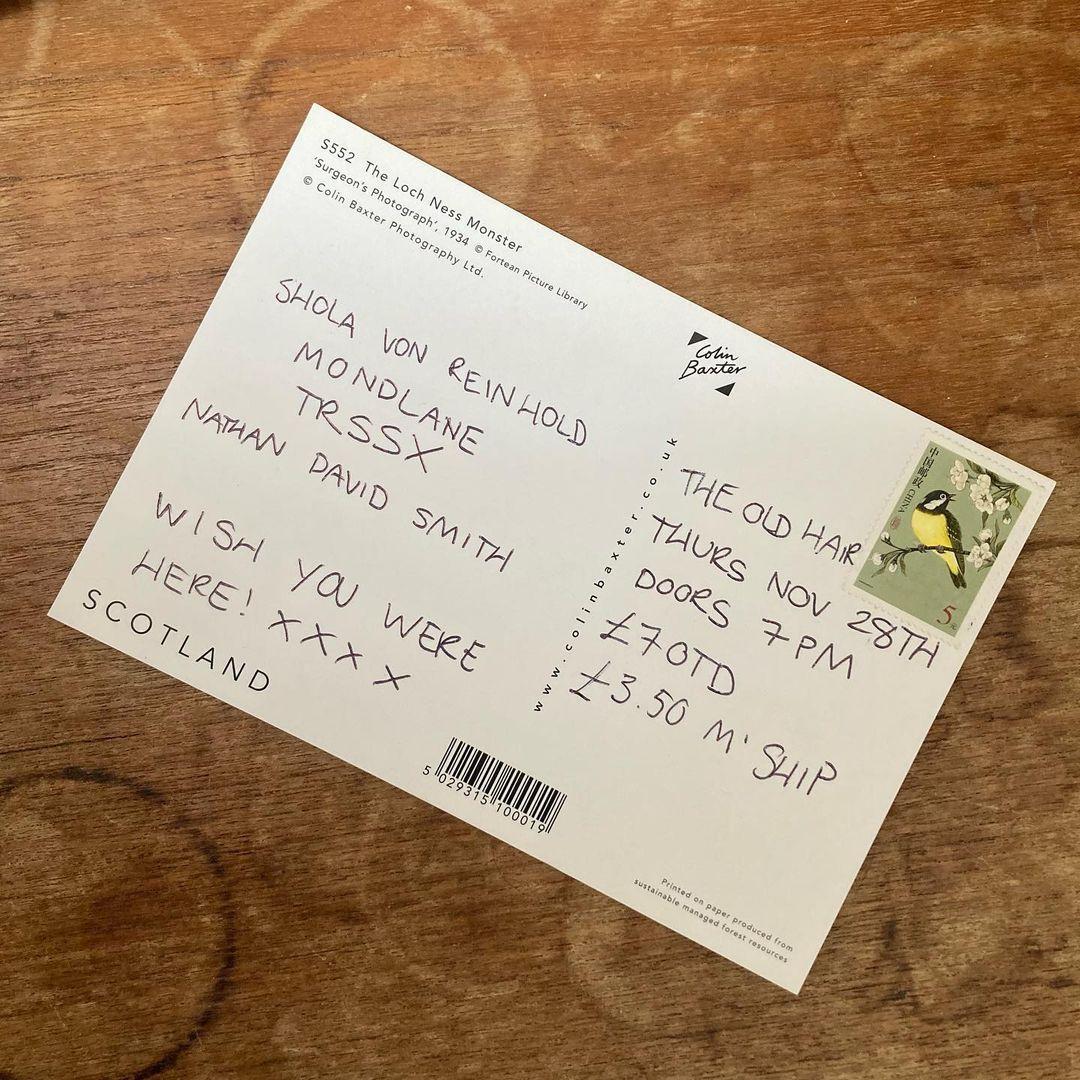 S552 The Loch Ness Monster
'Surgeon's Photograph', 1934 © Fortean Picture Library
© Colin Baxter Photography Ltd.
SHOLA VON REINHOLD
MONDLANE
TRSSX
NATHAN DAVID SMITH
WISH YOU WERE
HERE! XXXX
SCOTLAND
5 029315 100019
Colin
Baxter
www.colinbaxter.co.uk
中国邮政
CHINA
5元
THE OLD HAIR
THURS NOV 28TH
DOORS 7PM
£7 OTD
£3.50 M'SHIP
Printed on paper produced from
sustainable managed forest resources